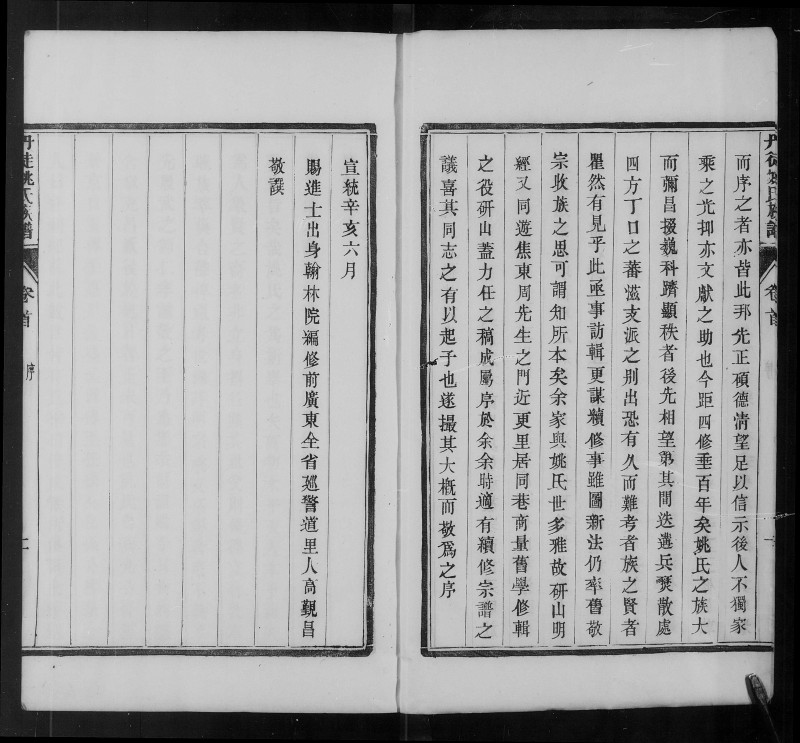 丹徒姚氏族譜
卷首
而序之者亦皆此邦先正碩德清望足以信示後人不獨家
乘之光抑亦文獻之助也今距四修垂百年矣姚氏之族大
而彌昌掇巍科躋顯秩者後先相望第其間迭遘兵燹散處
四方丁口之蕃滋支派之別出恐有久而難考者族之賢者
瞿然有見乎此亟事訪輯更謀續修事雖圖新法仍率舊敬
宗收族之思可謂知所本矣余家與姚氏世多雅故研山明
經又同遊焦東周先生之門近更里居同巷商量舊學修輯
之役研山蓋力任之稿成屬序於余余時適有續修宗譜之
議喜其同志之有以起予也遂撮其大概而敬爲之序
宣統辛亥六月
賜進士出身翰林院編修前廣東全省廵警道里人高覲昌
敬譔
丹徒姚氏族譜
卷首
序
二